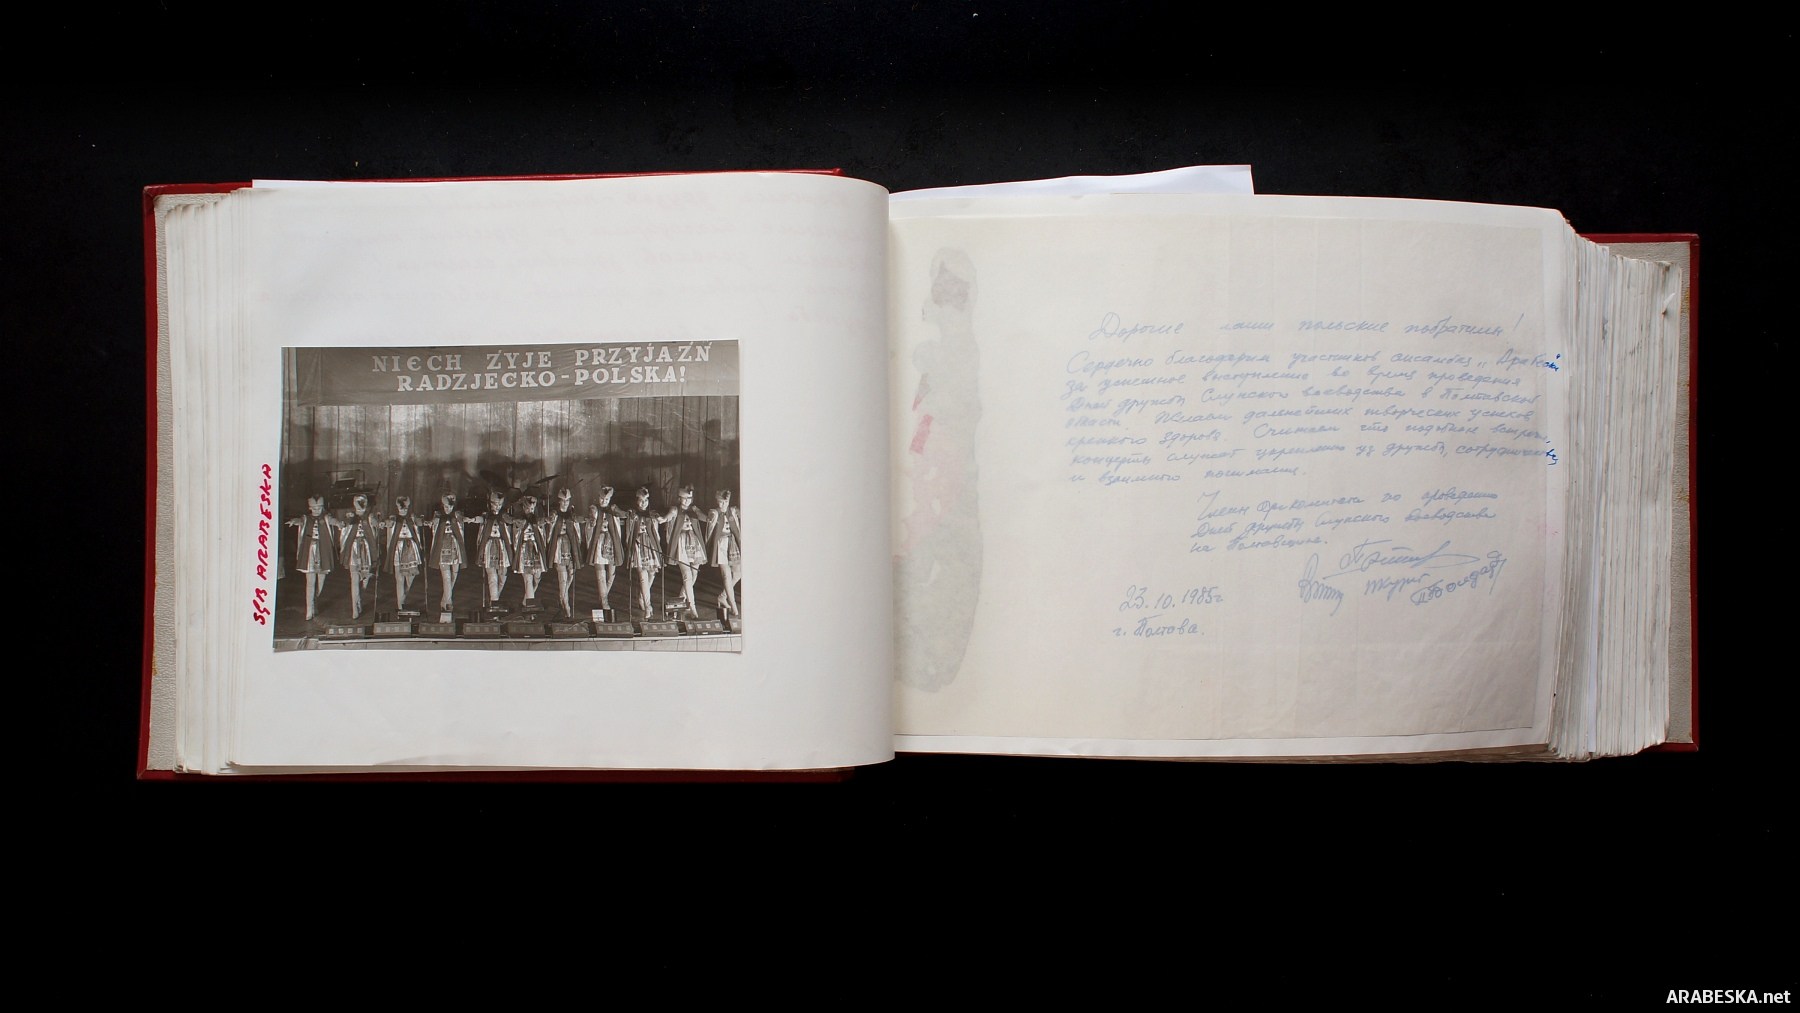 NIECH ŻYJE PRZYJAŹŃ
RADZIECKO-POLSKA!
ARABESKA
Дорогие наши польские побратимы!
Сердечно благодарим участников ансамбля "Арабески"
за успешное выступление во время проведения
Дней дружбы Слупского воеводства в Полтавской
области. Желаем дальнейших творческих успехов,
крепкого здоровья. Считаем что подобные встречи,
концерты служат укреплению уз дружбы, сотрудничества
и взаимного понимания.
Члены оргкомитета по проведению
Дней дружбы Слупского воеводства
на Полтавщине.
23.10.1985г
г. Полтава.
ARABESKA.net